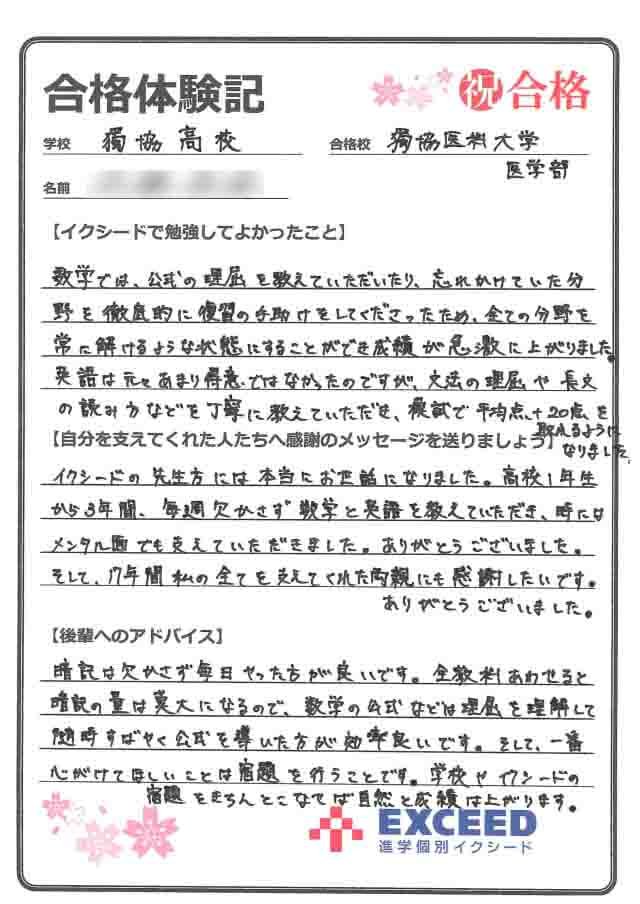 合格体験記
祝 合格
学校 獨協高校
合格校 獨協医科大学
医学部
名前
【イクシードで勉強してよかったこと】
数学では、公式の理屈を教えていただいたり、忘れかけていた分
野を徹底的に復習の手助けをしてくださったため、全ての分野を
常に解けるような状態にすることができ成績が急激に上がりました。
英語は元々あまり得意ではなかったのですが、文法の理屈や長文
の読み方などを丁寧に教えていただき、模試で平均点+20点を
取れるように
なりました。
【自分を支えてくれた人たちへ感謝のメッセージを送りましょう】
イクシードの先生方には本当にお世話になりました。高校1年生
から3年間、毎週欠かさず数学と英語を教えていただき、時には
メンタル面でも支えていただきました。ありがとうございました。
そして、17年間私の全てを支えてくれた両親にも感謝したいです。
ありがとうございました。
【後輩へのアドバイス】
暗記は欠かさず毎日やった方が良いです。全教科あわせると
暗記の量は莫大になるので、数学の公式などは理屈を理解して
随時すばやく公式を導いた方が効率良いです。そして、一番
心がけてほしいことは宿題を行うことです。学校やイクシードの
宿題をきちんとこなせば自然と成績は上がります。
EXCEED
進学個別イクシード